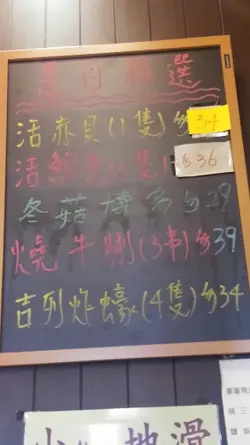 夏日精選
活赤貝(1隻)$34
活鮑魚(1隻)$36
冬菇博多$29
燒牛脷(3串)$39
吉列炸蠔(4隻)$34
小心地滑